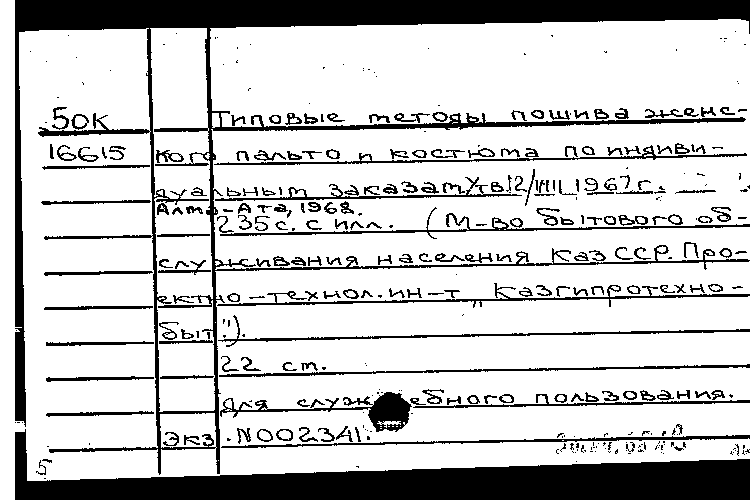 50К Типовые методы пошива женс-
16615 кого пальто и костюма по индиви-
дуальным заказам. Утв 12/VIII 1967г.
Алма-Ата, 1968.
235 с. с илл. (М-во бытового об-
служивания населения КазССР. Про-
ектно-технол. ин-т „Казгипротехно-
быт").
22 см.
Для служебного пользования.
Экз. №002341.
5